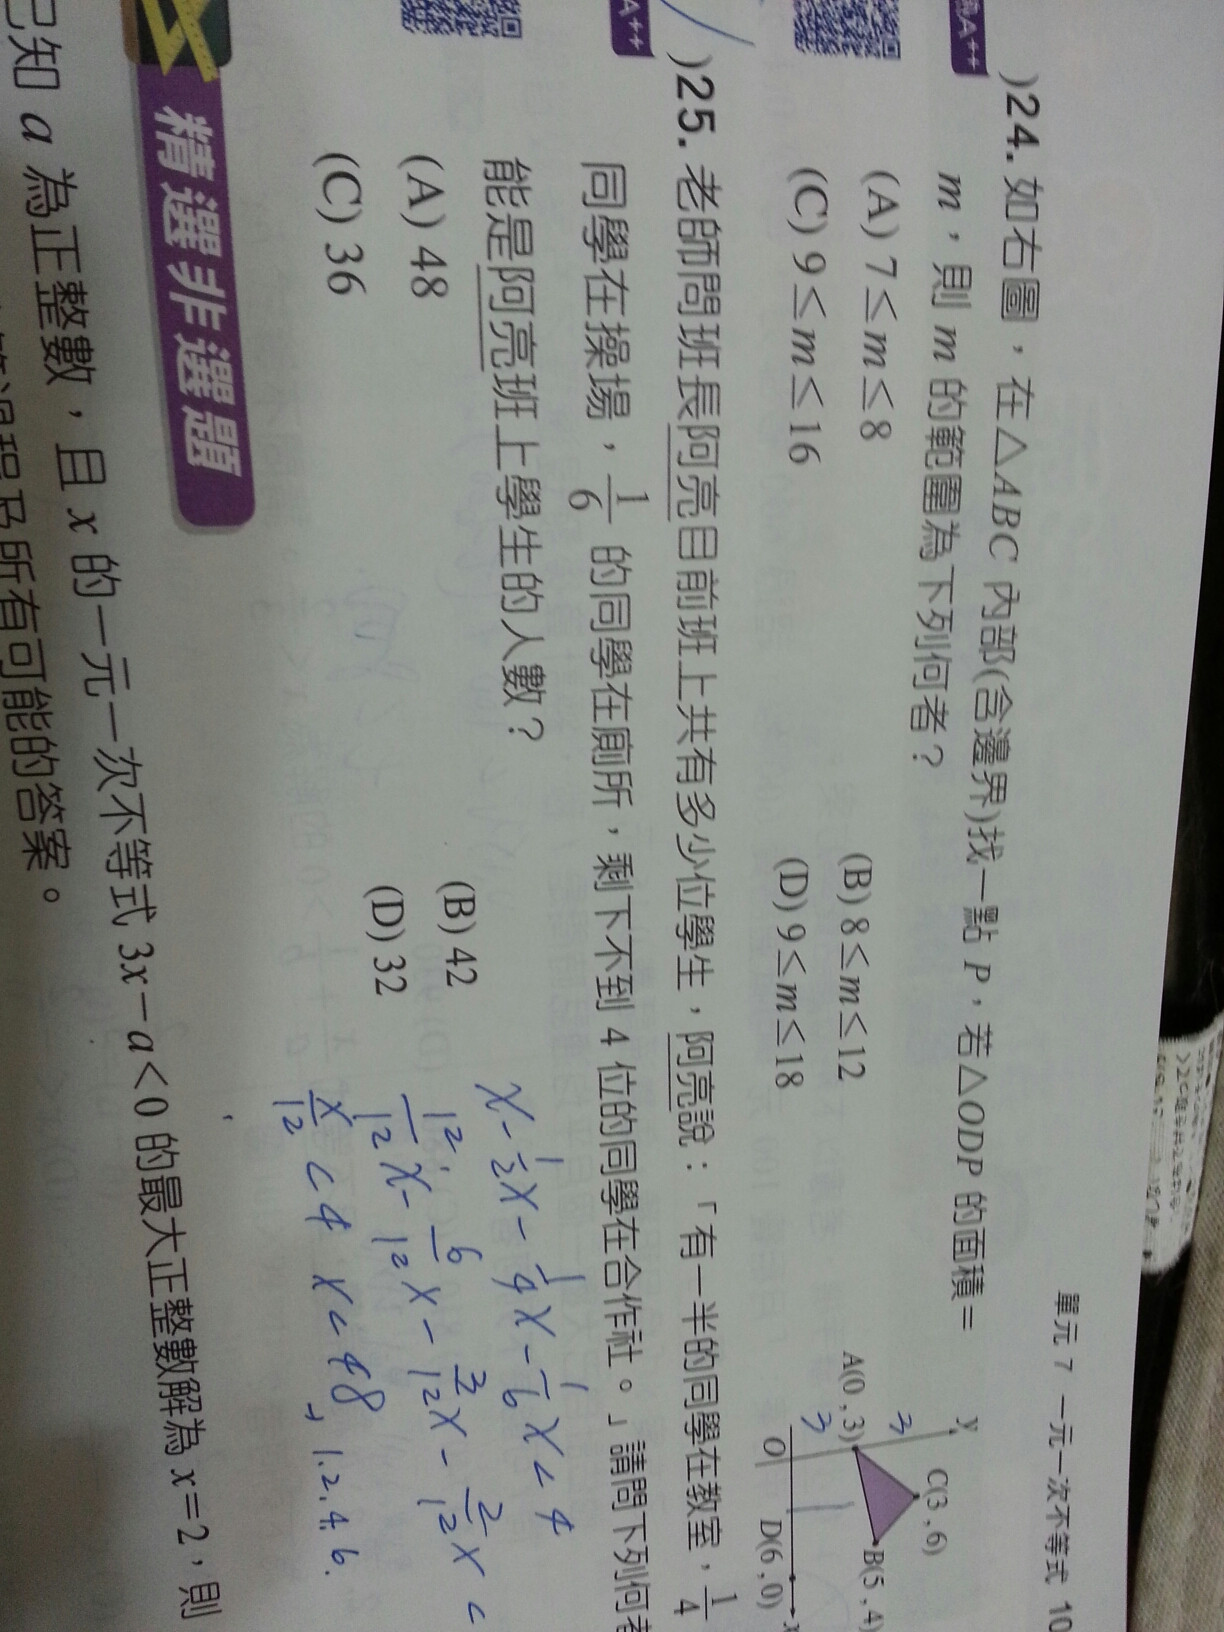 單元 7 一元一次不等式 10
A++
)24. 如右圖，在△ABC 內部(含邊界)找一點 P，若△ODP 的面積＝
m，則 m 的範圍為下列何者？
(A) 7≤m≤8
(B) 8≤m≤12
(C) 9≤m≤16
(D) 9≤m≤18
y
C(3 , 6)
3
A(0 , 3)
B(5 , 4)
3
O
D(6 , 0)
x
A++
)25. 老師問班長阿亮目前班上共有多少位學生，阿亮說：「有一半的同學在教室，1/4
同學在操場，1/6 的同學在廁所，剩下不到 4 位的同學在合作社。」請問下列何者
能是阿亮班上學生的人數？
(A) 48
(B) 42
(C) 36
(D) 32
x - 1/2 x - 1/4 x - 1/6 x < 4
12/12 x - 6/12 x - 3/12 x - 2/12 x <
x/12 < 4 x < 48 → 1.2.4.6.
精選非選題
已知 a 為正整數，且 x 的一元一次不等式 3x－a＜0 的最大正整數解為 x＝2，則
過程及所有可能的答案。